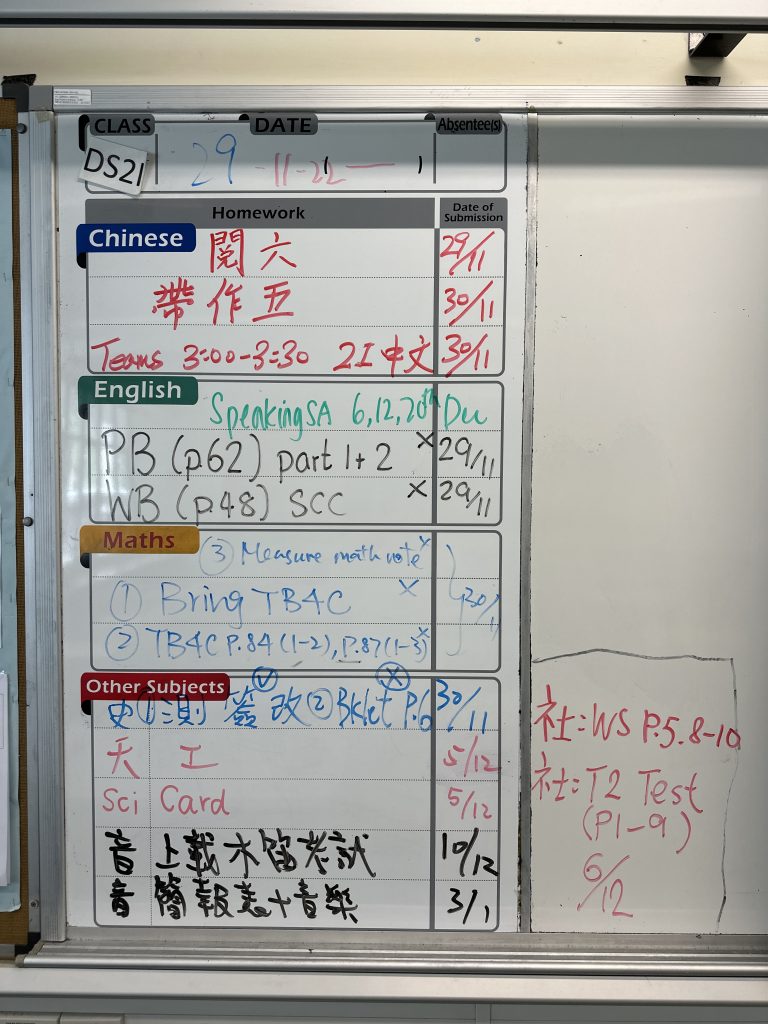 CLASS DATE Absentee(s)
DS21 29-11-22
Homework Date of Submission
Chinese
閱六 29/11
帶作五 30/11
Teams 3:00-3:30 2I中文 30/11
English
Speaking SA 6,12,20th Dec
PB (p.62) part 1+2 × 29/11
WB (p.48) SCC × 29/11
Maths
③ Measure math note ×
① Bring TB4C × 30/11
② TB4C P.84 (1-2), P.87 (1-3) ×
Other Subjects
史 ①測 簽改 ②Bklet P.6 30/11
天 工 5/12
Sci Card 5/12
音 上載木笛考試 10/12
音 簡報表+音樂 3/1
社:WS P.5.8-10
社:T2 Test
(P1-9)
6/12